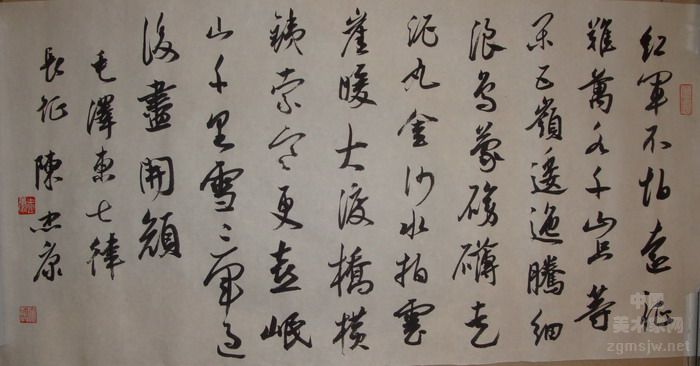 紅軍不怕遠征
難萬水千山只等
閑五嶺逶迤騰細
浪烏蒙磅礴走
泥丸金沙水拍雲
崖暖大渡橋橫
鐵索寒更喜岷
山千里雪三軍過
後盡開顏
毛澤東七律
長征 陳忠康
中国
美术家网
zgmsjw.net